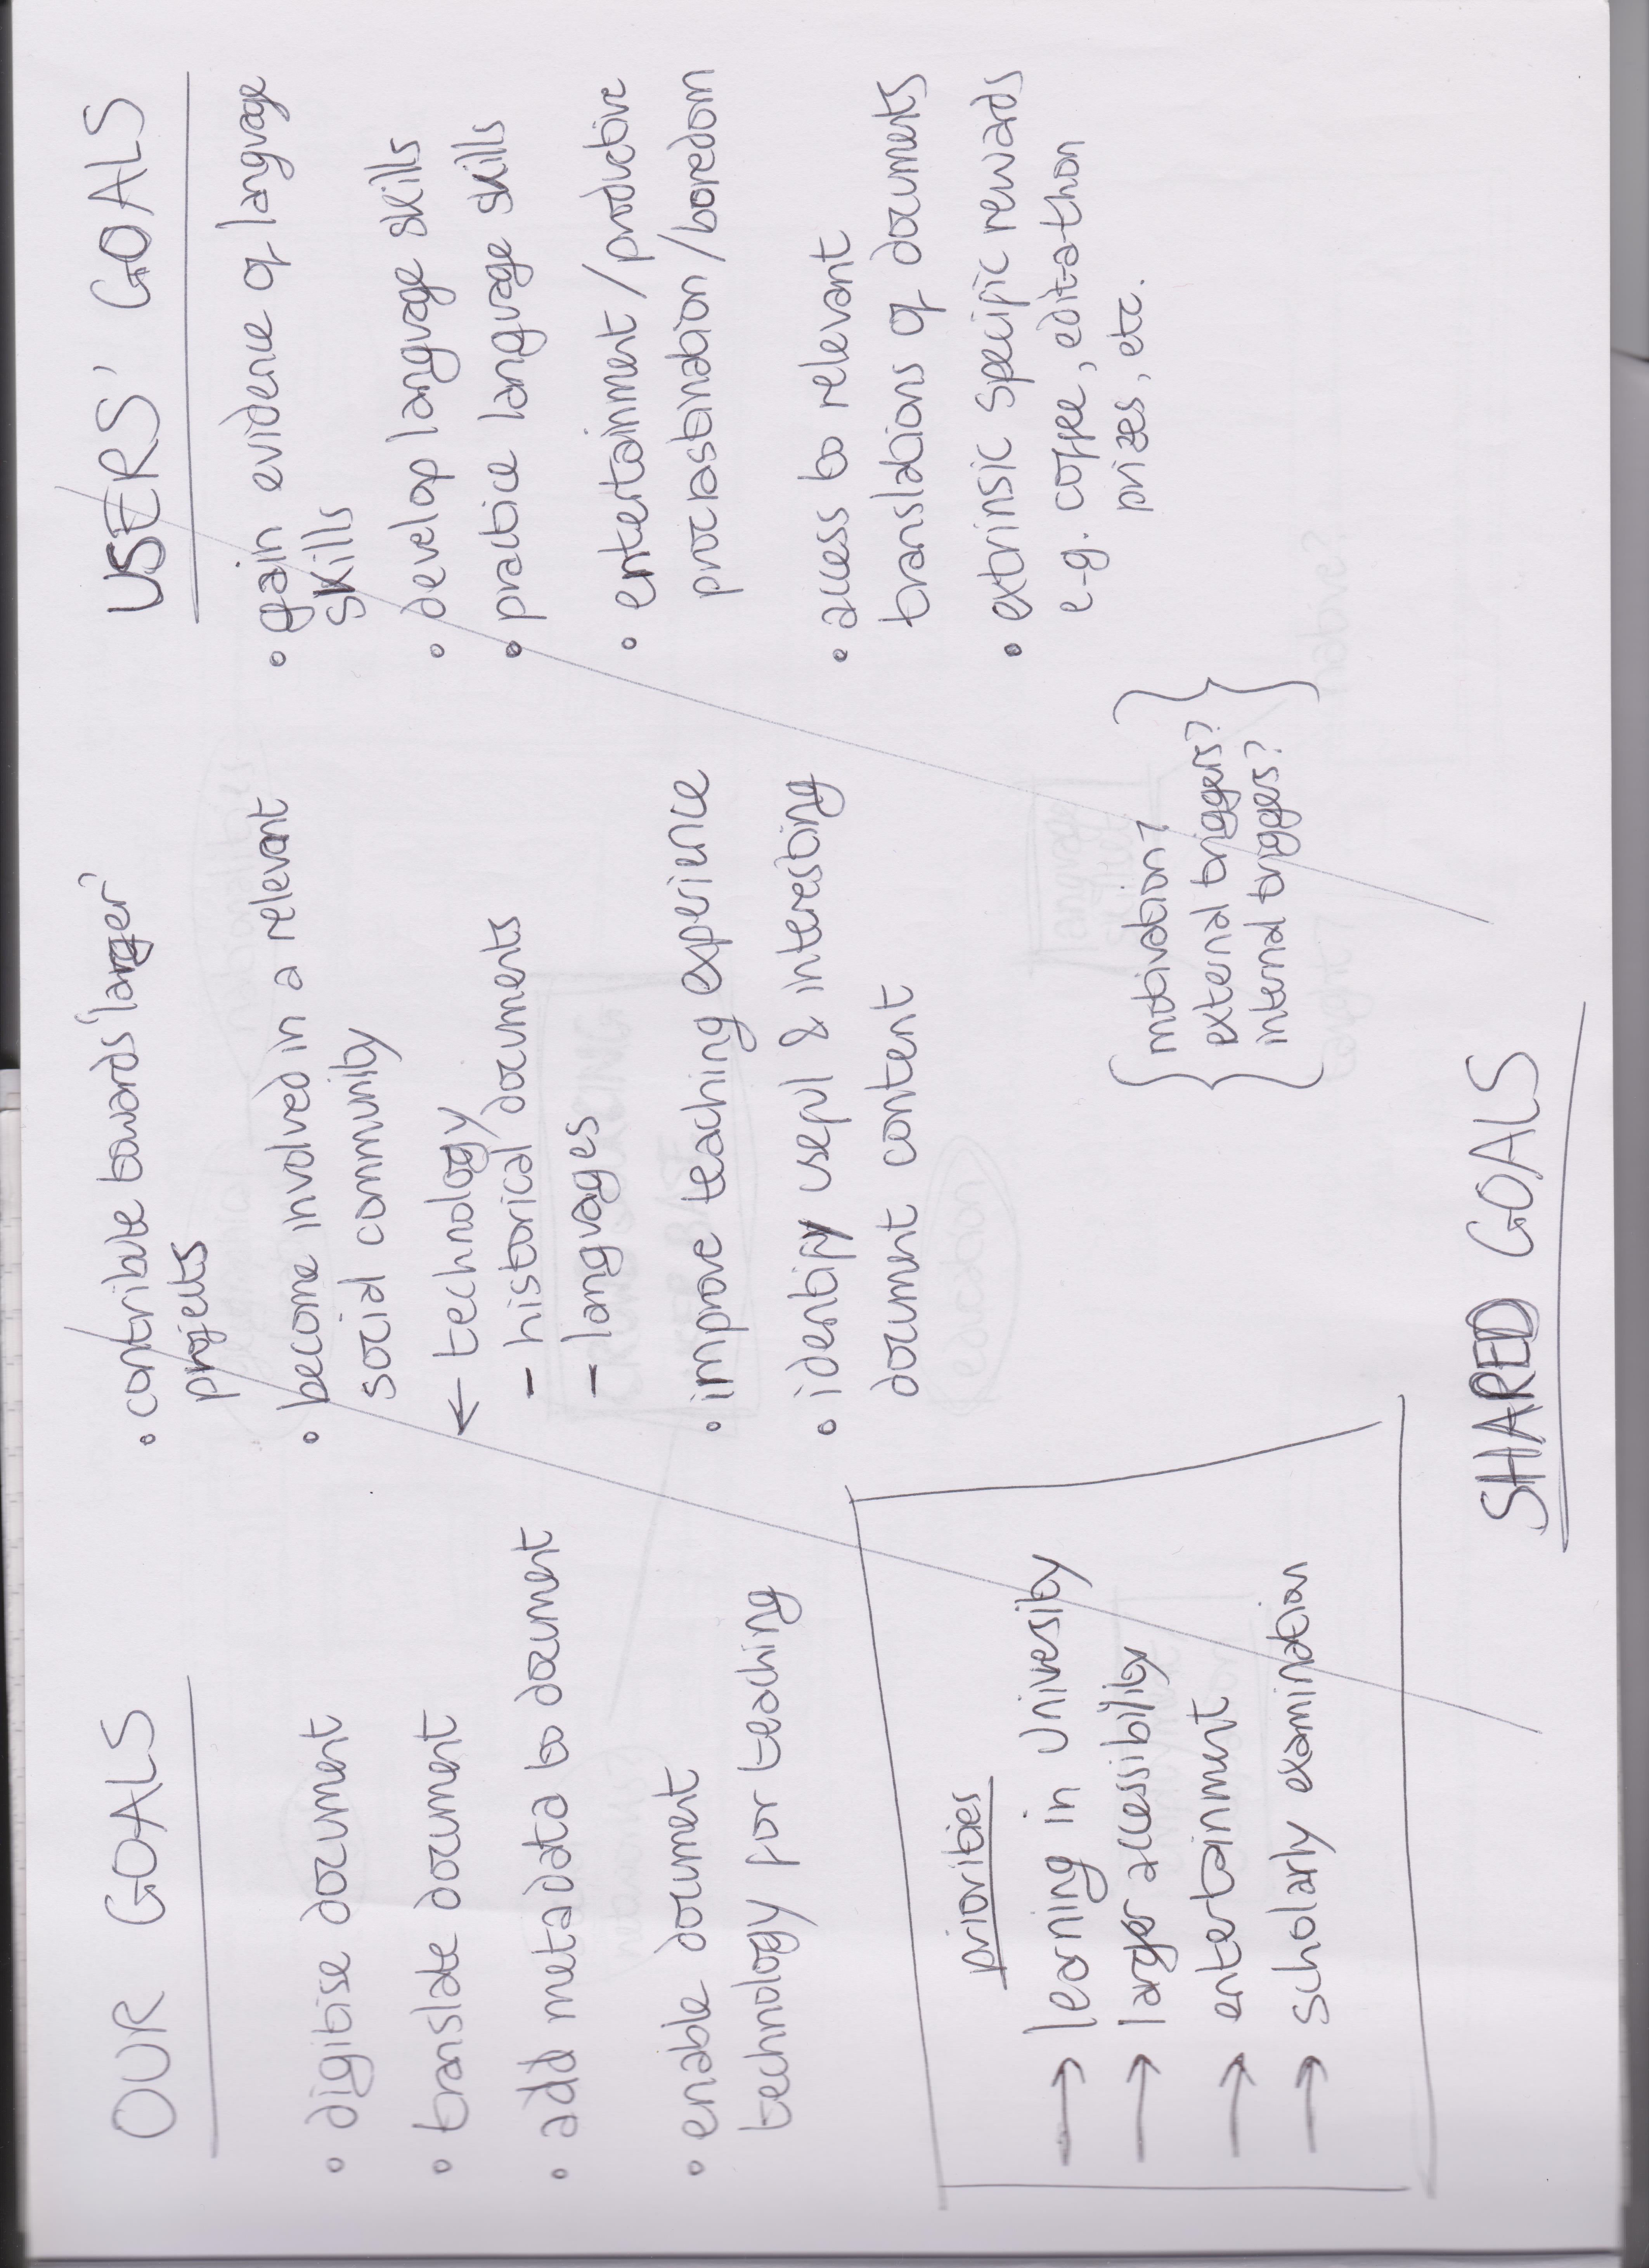 OUR GOALS
• digitise document
• translate document
• add metadata to document
• enable document
technology for teaching
priorities
→ learning in University
→ larger accessibility
→ entertainment
→ scholarly examination
• contribute towards 'larger'
projects
• become involved in a relevant
social community
← technology
– historical documents
– languages
• improve teaching experience
• identify useful & interesting
document content
{motivation?
external triggers?
internal triggers?}
SHARED GOALS
USERS' GOALS
• gain evidence of language
skills
• develop language skills
• practice language skills
• entertainment/productive
procrastination/boredom
• access to relevant
translations of documents
• extrinsic specific rewards
e.g. coffee, edit-a-thon
prizes, etc.